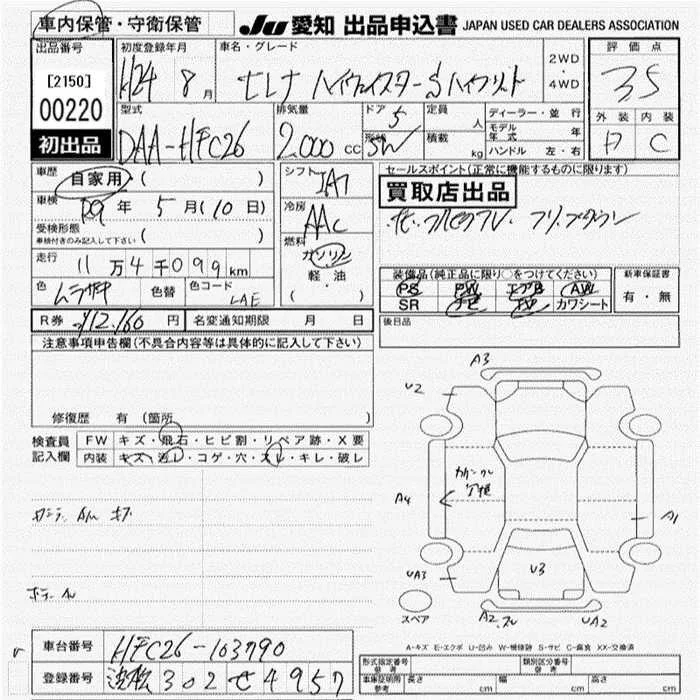 車内保管・守衛保管
JU 愛知 出品申込書 JAPAN USED CAR DEALERS ASSOCIATION
出品番号
[2150]
00220
初出品
初度登録年月
H24 8月
車名・グレード
セレナ ハイウェイスターSハイブリット
2WD
・
4WD
評価点
3.5
外装 内装
D C
型式
DAA-HFC26
排気量
2,000 CC
ドア
5
形状
SW
定員
人
積載
kg
ディーラー・並行
モデル年式 年
ハンドル 左・右
車歴
自家用 ( )
車検
R9年 5月(10日)
受検形態
車検付きのみ記入して下さい ( )
走行
11万4千099km
色 色替 色コード
ムラサキ LAE
シフト
IAT
冷房
AAC
燃料
ガソリン
軽・油
( )
セールスポイント(正常に機能するものに限ります)
買取店出品
フリップダウン
装備品(純正品に限り○をつけてください)
PS PW エアB AW
SR ナビ TV カワシート
新車保証書
有・無
後日品
R券 ¥12,160 円
名変通知期限 月 日
注意事項申告欄(不具合内容等は具体的に記入して下さい)
修復歴 有 (箇所 )
検査員
記入欄
FW キズ・飛石・ヒビ割・リペア跡・X要
内装 キズ・汚レ・コゲ・穴・スレ・キレ・破レ
A3
U2
A4
A1
UA3
U3
A2
UA2
スペア
A-キズ E-エクボ U-凹み W-補修跡 S-サビ C-腐食 XX-交換済
車台番号 HFC26-103790
登録番号 浜松 302 せ 4957
形式指定番号
参考
類別区分番号
参考
車庫証明用
参考
長さ cm 幅 cm 高さ cm